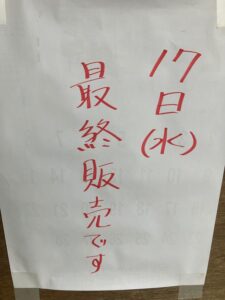 17日(水)
最終販売です